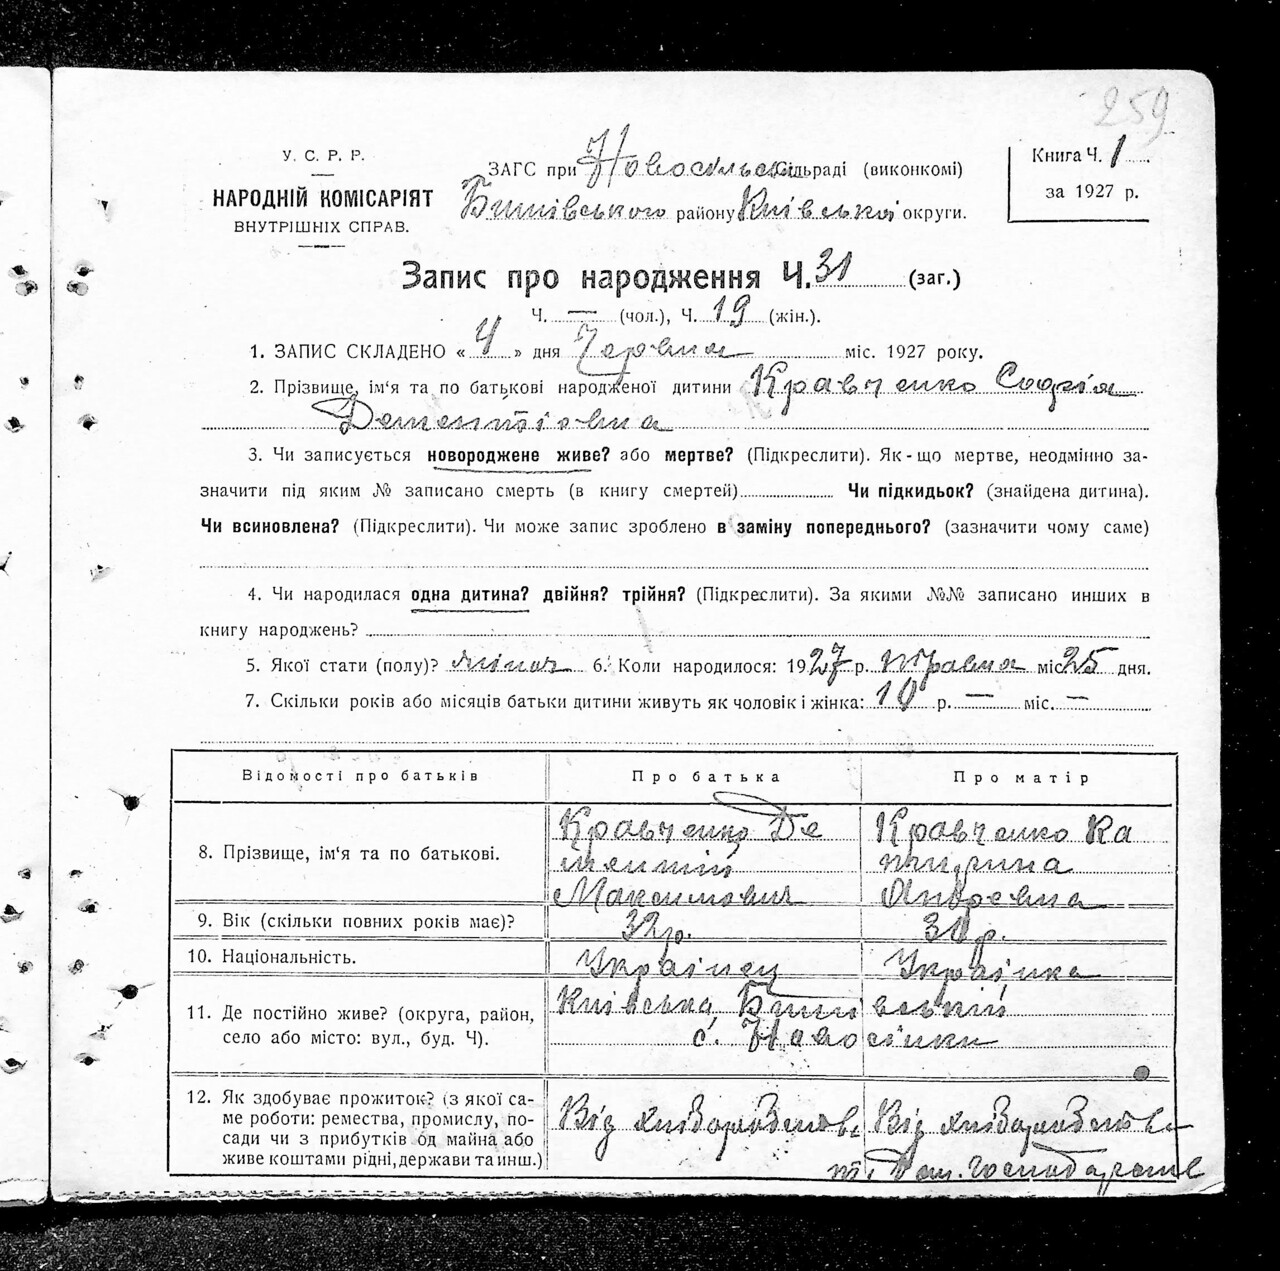 259
У. С. Р. Р.
НАРОДНІЙ КОМІСАРІЯТ
ВНУТРІШНІХ СПРАВ.
ЗАГС при Новосільськ сільраді (виконкомі)
району Київської округи.
Книга Ч. 1
за 1927 р.
Запис про народження Ч. 31 (заг.)
Ч. — (чол.), Ч. 19 (жін.).
1. ЗАПИС СКЛАДЕНО « 4 » дня Червня міс. 1927 року.
2. Прізвище, ім'я та по батькові народженої дитини Кравченко Софія
Дементіовна
3. Чи записується новороджене живе? або мертве? (Підкреслити). Як-що мертве, неодмінно за-
значити під яким № записано смерть (в книгу смертей) Чи підкидьок? (знайдена дитина).
Чи всиновлена? (Підкреслити). Чи може запис зроблено в заміну попереднього? (зазначити чому саме)
4. Чи народилася одна дитина? двійня? трійня? (Підкреслити). За якими №№ записано инших в
книгу народжень?
5. Якої стати (полу)? жіноч 6. Коли народилося: 1927 р. травня міс. 25 дня.
7. Скільки років або місяців батьки дитини живуть як чоловік і жінка: 10 р. — міс. —
Відомості про батьків Про батька Про матір
8. Прізвище, ім'я та по батькові.
Кравченко Де
ментій
Максимович
Кравченко Ка
тирина
Андреевна
9. Вік (скільки повних років має)? 32 р. 30 р.
10. Національність. Украінец Украінка
11. Де постійно живе? (округа, район,
село або місто: вул., буд. Ч).
Київська
с. Новосілки
12. Як здобуває прожиток? (з якої са-
ме роботи: ремества, промислу, по-
сади чи з прибутків од майна або
живе коштами рідні, держави та инш.)
Від хліборобства Від хліборобства
т. Дом. господарств